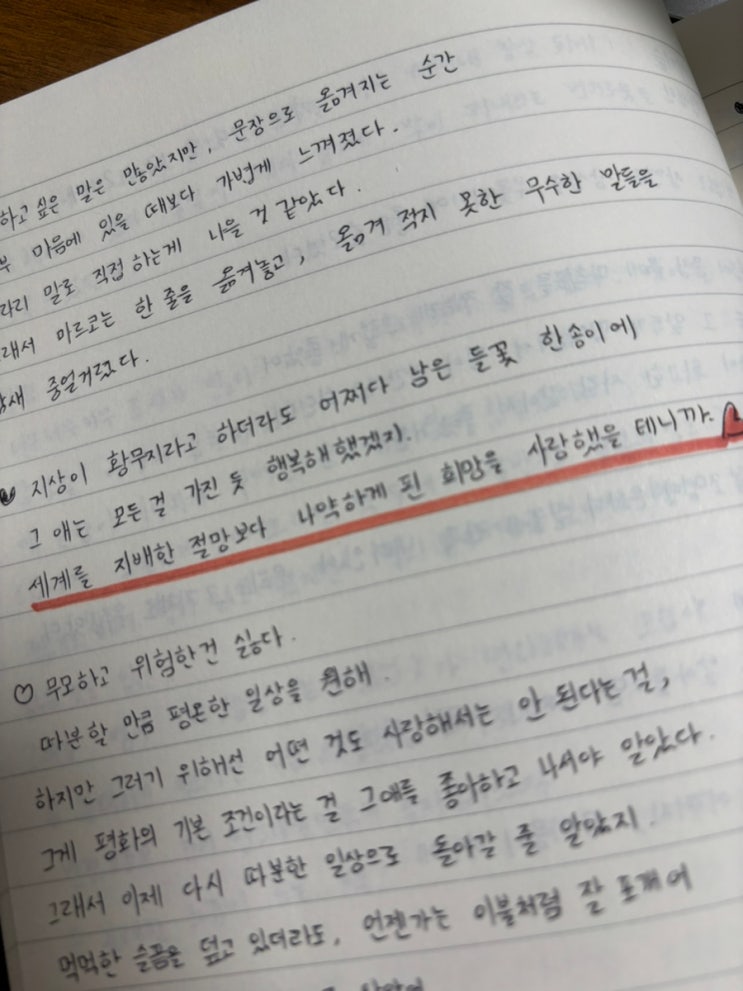 하고 싶은 말은 많았지만, 문장으로 옮겨지는 순간
마음에 있을 때보다 가볍게 느껴졌다.
말로 직접 하는게 나을 것 같았다.
마르코는 한 줄을 옮겨놓고, 옮겨 적지 못한 무수한 말들을
중얼거렸다.
지상이 황무지라고 하더라도 어쩌다 남은 들꽃 한송이에
그 애는 모든 걸 가진 듯 행복해 했겠지.
세계를 지배한 절망보다 나약하게 핀 희망을 사랑했을 테니까.
♡ 무모하고 위험한건 싫다.
따분할 만큼 평온한 일상을 원해.
하지만 그러기 위해선 어떤 것도 사랑해서는 안 된다는 걸,
그게 평화의 기본 조건이라는 걸 그애를 좋아하고 나서야 알았다.
그래서 이제 다시 따분한 일상으로 돌아갈 줄 알았지.
먹먹한 슬픔을 덮고 있더라도, 언젠가는 이불처럼 잘 포개어